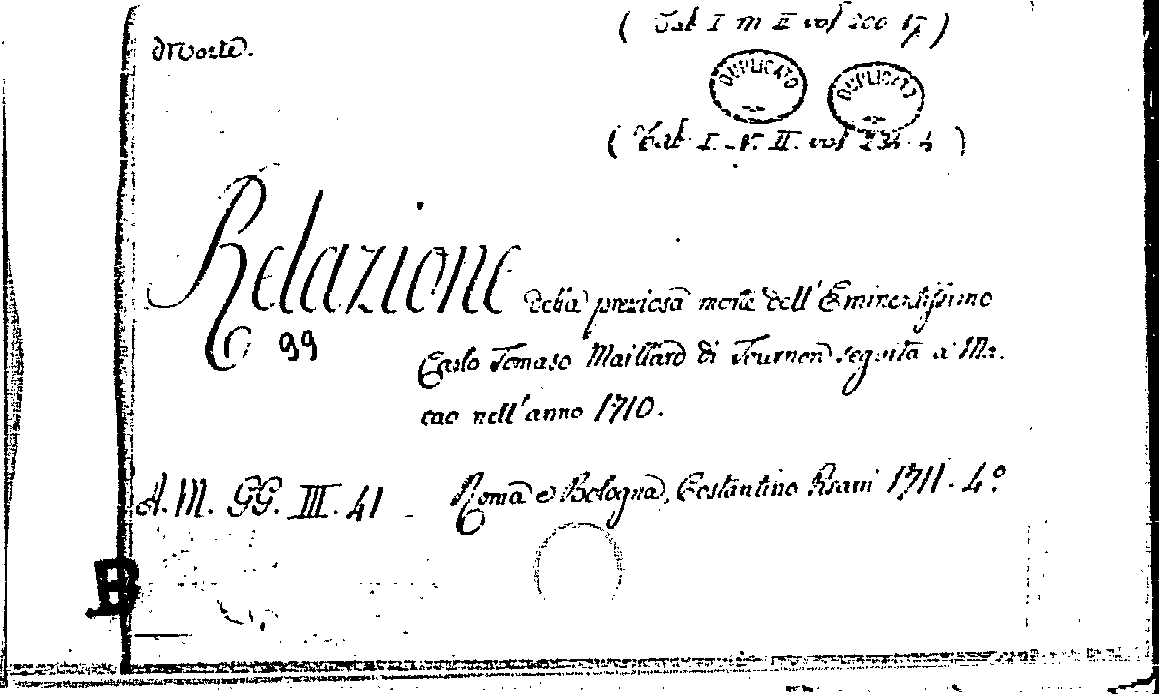 ( Tab I m II vol 200 17 )
Morte.
DUPLICATO DUPLICATO
( Tab. I. N. II. vol 234. 4 )
Relazione della preziosa morte dell'Eminentissimo
99
Carlo Tomaso Maillard di Tournon seguita a Ma-
cao nell'anno 1710.
A. M. GG. III. 41 - Roma e Bologna, Costantino Pisarri 1711. 4º
B